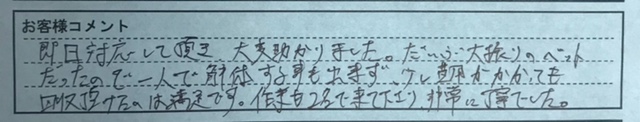 お客様コメント
即日対応して頂き 大変助かりました。だいぶ大振りのベット
だったので一人で解体する事も出来ず 少し費用がかかっても
回収頂けたのは満足です。作業も2名で来て下さり 非常に丁寧でした。